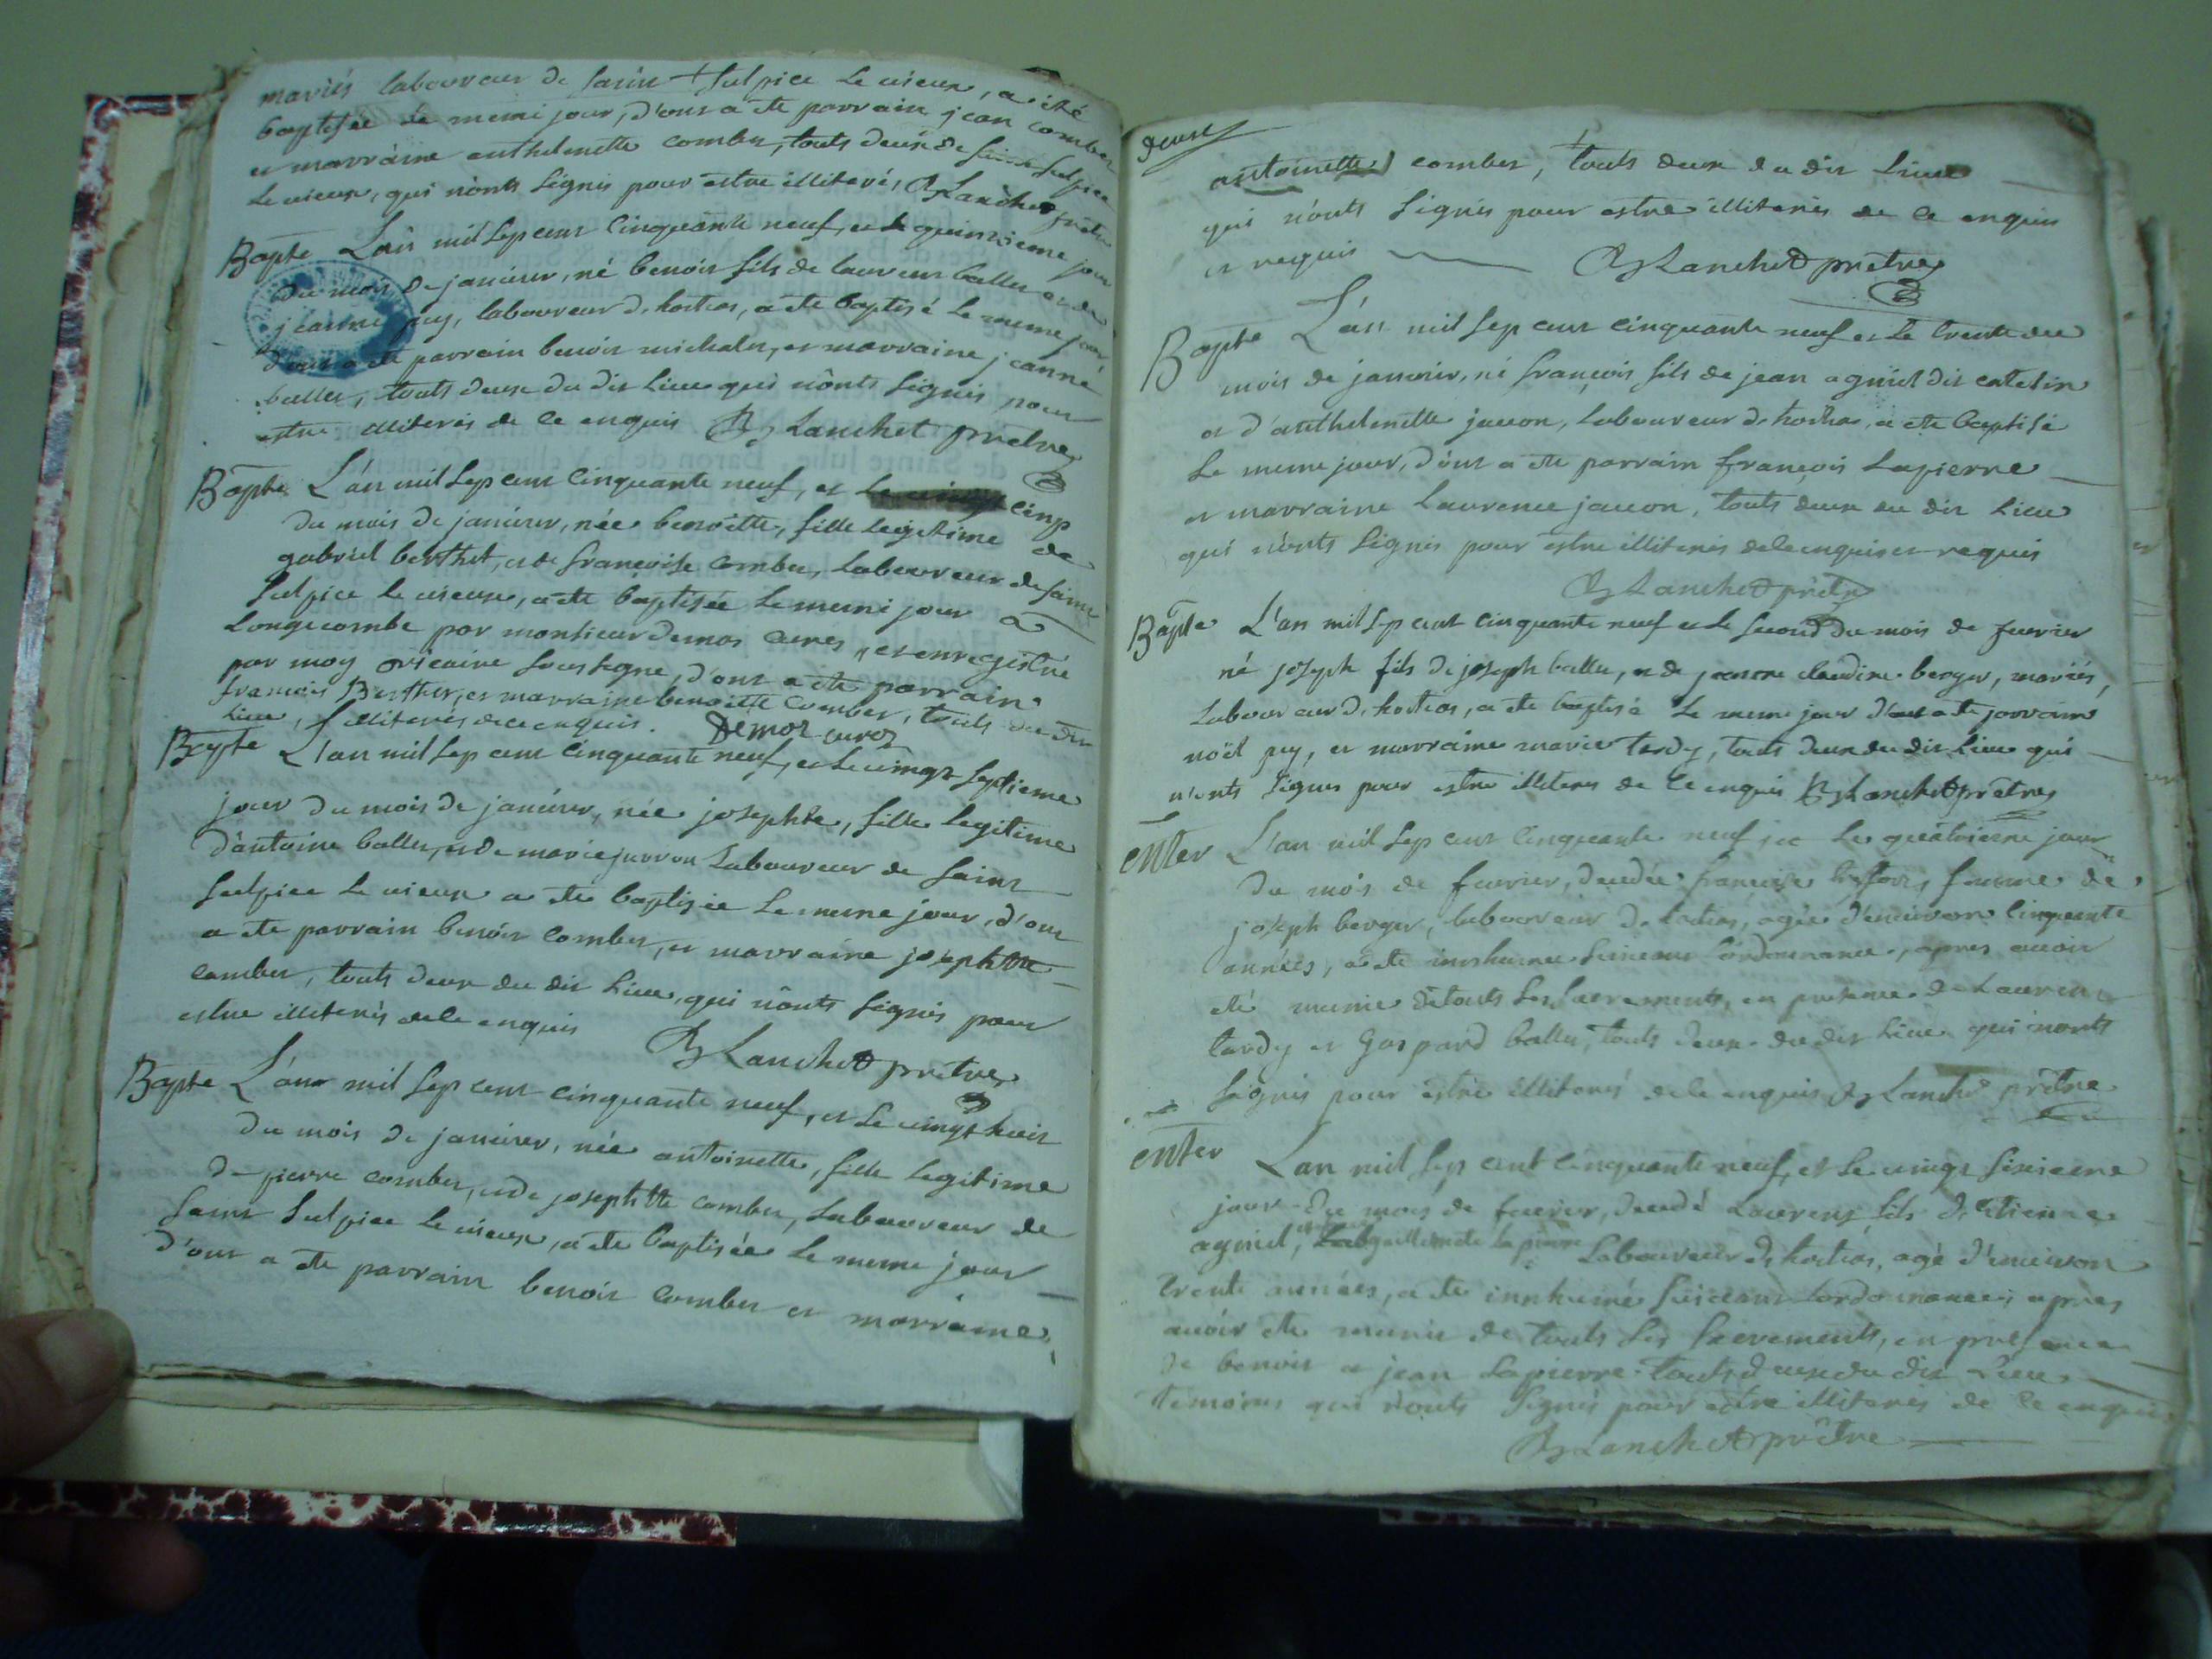 mariés laboureur de saint Sulpice le vieux, a été
baptisée le meme jour, d'ont a ete parrain jean combet
et marraine anthelmette combet, touts deux de saint Sulpice
le vieux, qui n'onts signés pour estre illiterés, Blanchet prêtre
Bapte L'an mil sep cent cinquante neuf, et le quinzieme jour
du mois de janvier, né benoit fils de laurent ballet et de
jeanne puy, laboureur d'hostias, a ete baptisé le meme jour
d'ont a eté parrain benoit michalet, et marraine jeanne
ballet, touts deux du dit lieu qui n'onts signés pour
estre illiterés de ce enquis Blanchet prêtre
Bapte L'an mil sep cent cinquante neuf, et cinq
du mois de janvier, née benoitte, fille legitime de
gabriel berthet, et de françoise combet, laboureur de saint
sulpice le vieux, a ete baptisée le meme jour a
Longecombe par monsieur demos curés, et enregistré
par moy vicaire soussigne, d'ont a ete parrain
francois Berthet, et marraine benoitte combet, touts du dit
lieu, illiterés de ce enquis. Demos curés
Bapte L'an mil sep cent cinquante neuf, et le vingt septieme
jour du mois de janvier, née josephte, fille legitime
d'antoine ballet, et de marie juvron laboureur de saint
sulpice le vieux a ete baptisée le meme jour, d'ont
a ete parrain benoit combet, et marraine josephtte
combet, touts deux du dit lieu, qui n'onts signés pour
estre illiterés de ce enquis
Blanchet prêtre
Bapte L'an mil sep cent cinquante neuf, et le vingt huit
du mois de janvier, née antoinette, fille legitime
de pierre combet, et de josephtte combet, laboureur de
saint Sulpice le vieux, a ete baptisée le meme jour
d'ont a ete parrain benoit combet et marraine
deux
antoinette combet, touts deux du dit lieu
qui n'onts signés pour estre illiterés de ce enquis
et requis Blanchet prêtre
Bapte L'an mil sep cent cinquante neuf et le trente du
mois de janvier, né françois fils de jean agniel dit catelin
et d'anthelmette jacon, laboureur d'hostias, a ete baptisé
le meme jour, d'ont a ete parrain françois lapierre
et marraine laurence jacon, touts deux du dit lieu
qui n'onts signés pour estre illiterés de ce enquis et requis
Blanchet prêtre
Bapte L'an mil sep cent cinquante neuf et le second du mois de fevrier
né joseph fils de joseph ballet, et de jeanne claudine berger, mariés,
laboureur d'hostias, a ete baptisé le meme jour d'ont a ete parrain
noël puy, et marraine marie tardy, touts deux du dit lieu qui
n'onts signés pour estre illiterés de ce enquis Blanchet prêtre
enter L'an mil sep cent cinquante neuf et le quatrieme jour
du mois de fevrier, decedée françoise femme de
joseph berger, laboureur d'hostias, agée d'environ cinquante
années, a ete innhumée suivant l'ordonnance, apres avoir
eté munie de touts les sacrements, en presence de Laurent
tardy et Gaspard ballet, touts deux du dit lieu qui n'onts
signés pour estre illiterés de ce enquis Blanchet prêtre
enter L'an mil sep cent cinquante neuf, et le vingt sixieme
jour du mois de fevrier, decedé Laurent fils d'etienne
agniel, lapierre laboureur d'hostias, agé d'environ
trente années, a ete innhumé suivant l'ordonnance, apres
avoir ete munis de touts les sacrements, en presence
de benoit et jean lapierre touts deux du dit lieu
temoins qui n'onts signés pour estre illiterés de ce enquis
Blanchet prêtre